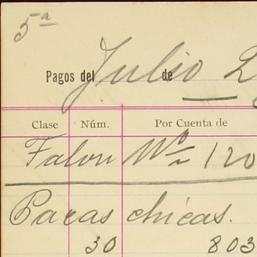 5ª
Pagos del Julio de 2
Clase Núm. Por Cuenta de
Falon Nº 120
Pacas chicas.
30 803